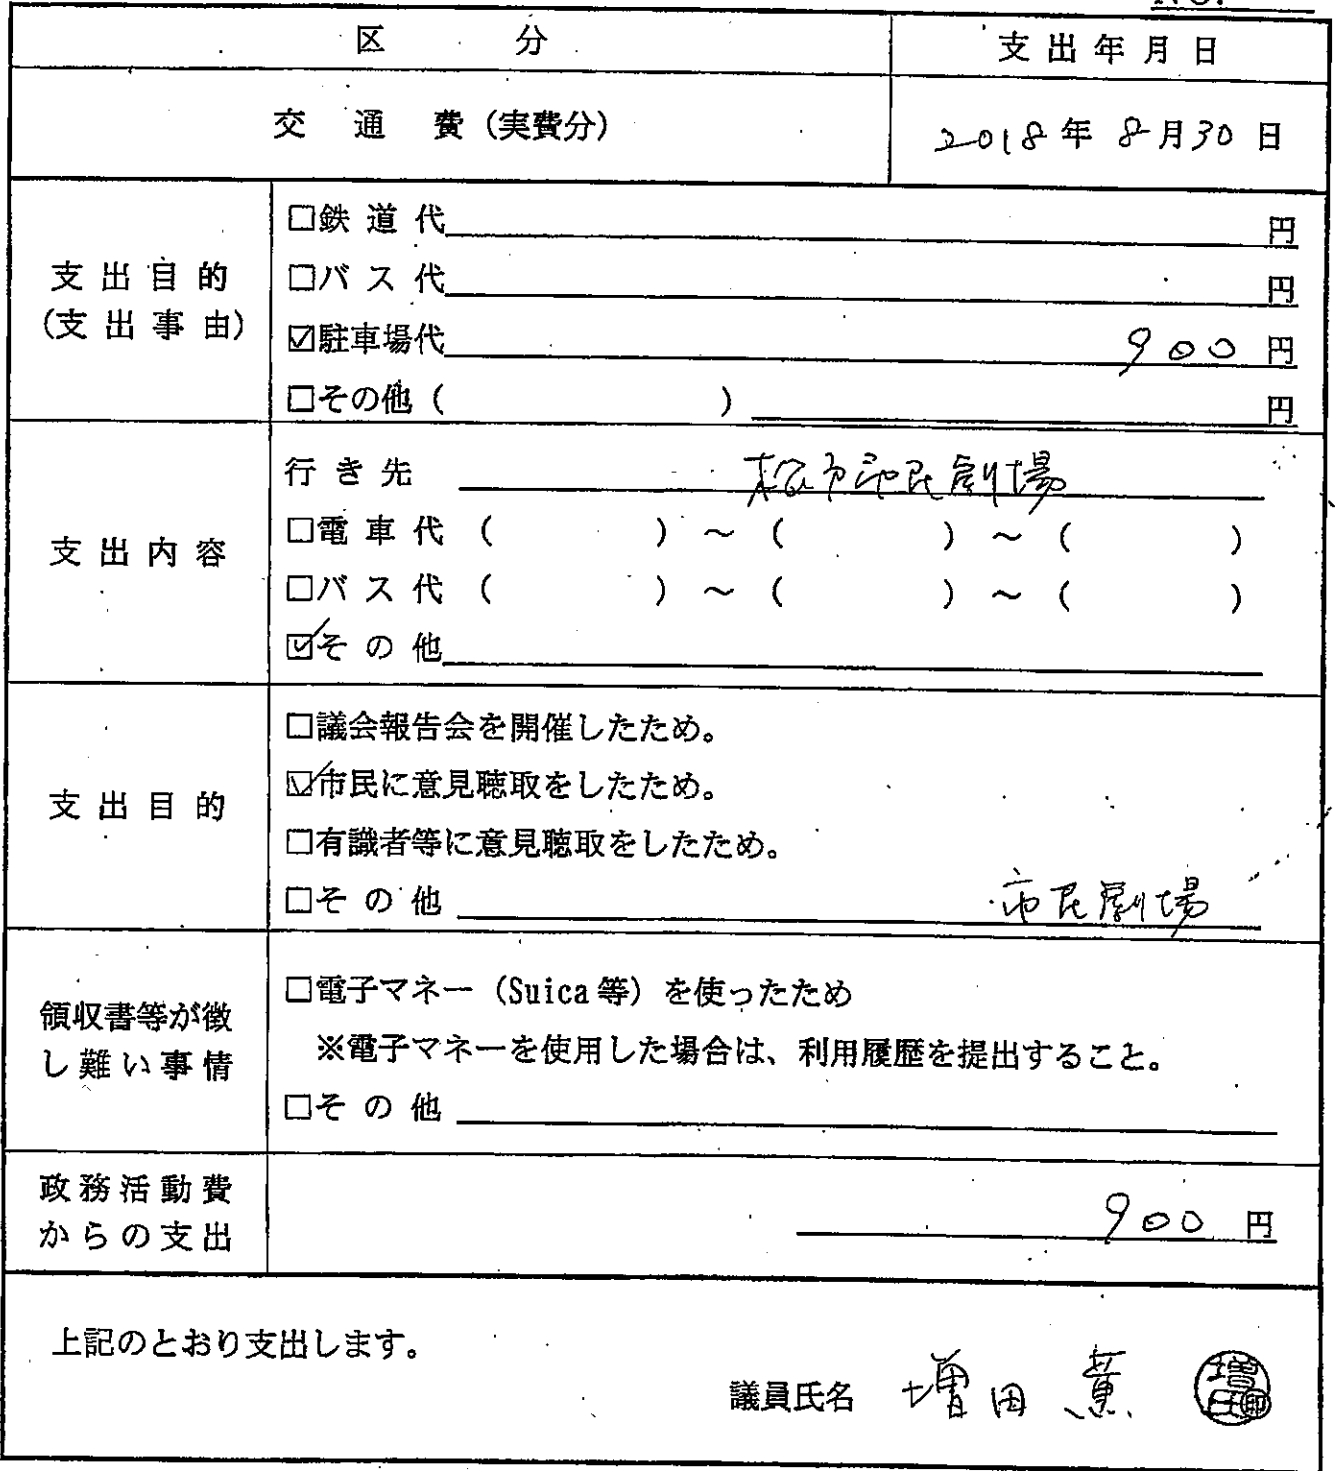 No.
区 分
支出年月日
交 通 費(実費分)
2018年 8月30日
支出目的
(支出事由)
□鉄道代 円
□バス代 円
☑駐車場代 900円
□その他( ) 円
支出内容
行き先 松戸市民劇場
□電車代( )~( )~( )
□バス代( )~( )~( )
☑その他
支出目的
□議会報告会を開催したため。
☑市民に意見聴取をしたため。
□有識者等に意見聴取をしたため。
□その他 市民劇場
領収書等が徴
し難い事情
□電子マネー(Suica等)を使ったため
※電子マネーを使用した場合は、利用履歴を提出すること。
□その他
政務活動費
からの支出
900円
上記のとおり支出します。
議員氏名 増田 薫